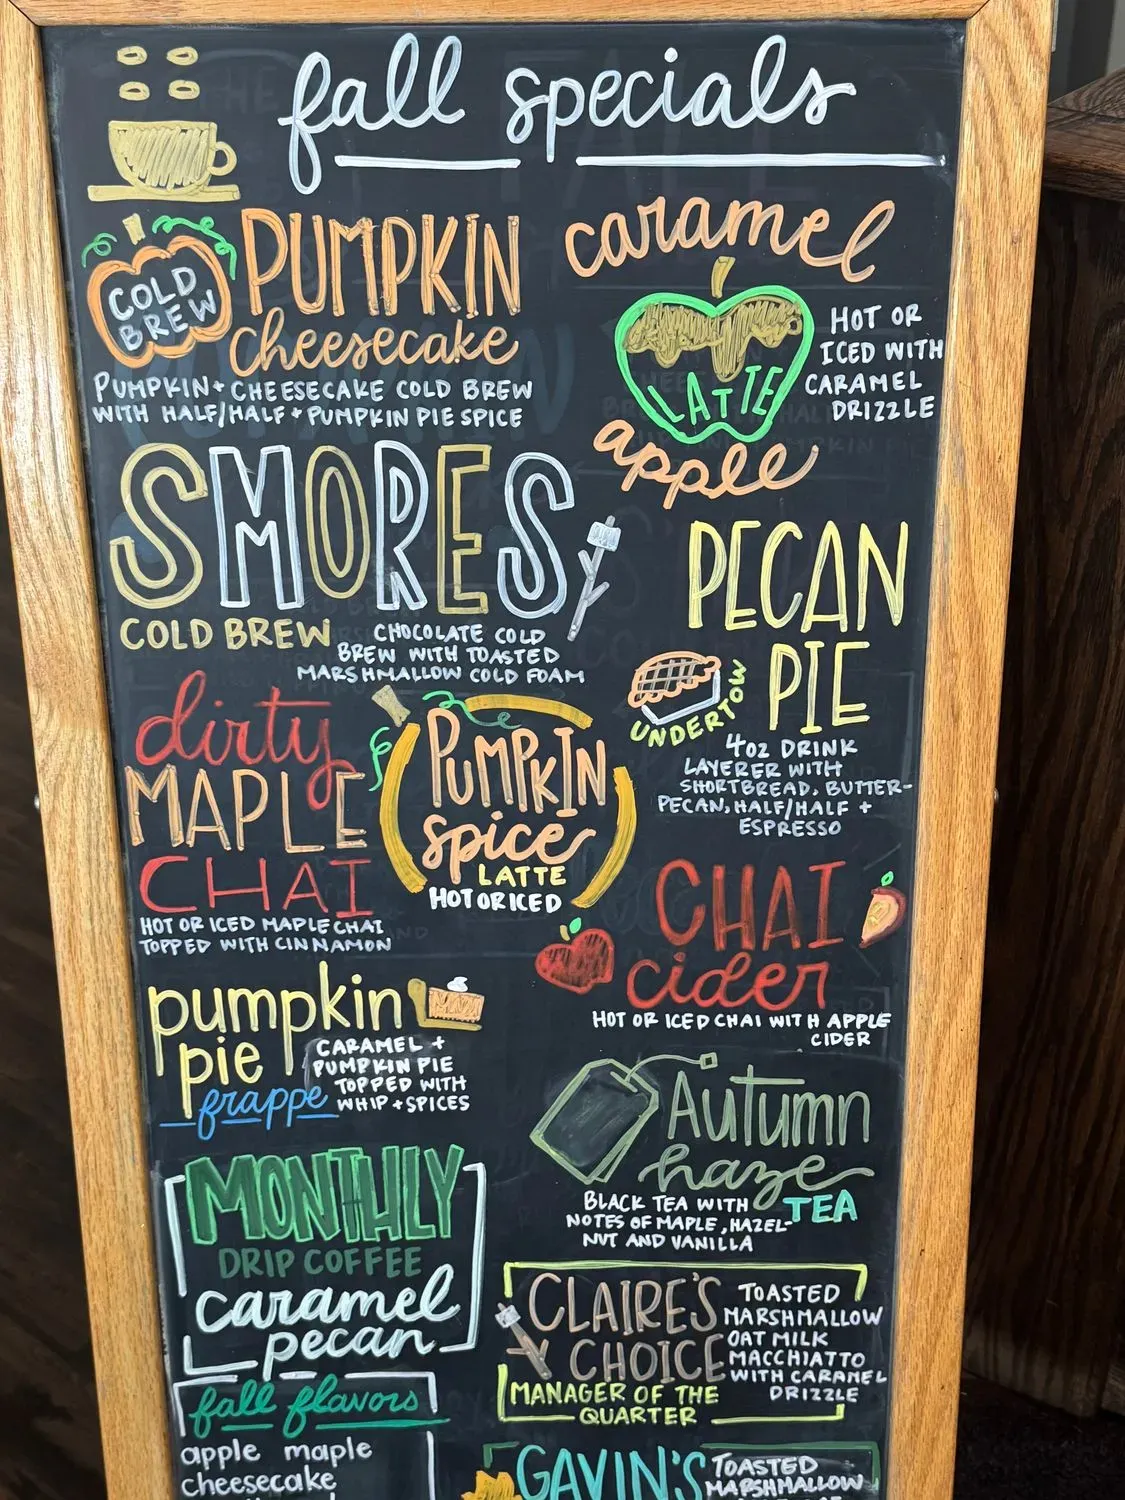 fall specials
COLD
BREW
PUMPKIN
cheesecake
PUMPKIN + CHEESECAKE COLD BREW
WITH HALF/HALF + PUMPKIN PIE SPICE
caramel
LATTE
apple
HOT OR
ICED WITH
CARAMEL
DRIZZLE
SMORES
COLD BREW
CHOCOLATE COLD
BREW WITH TOASTED
MARSHMALLOW COLD FOAM
PECAN
PIE
UNDERTOW
4OZ DRINK
LAYERER WITH
SHORTBREAD, BUTTER-
PECAN, HALF/HALF +
ESPRESSO
dirty
MAPLE
CHAI
HOT OR ICED MAPLE CHAI
TOPPED WITH CINNAMON
PUMPKIN
spice
LATTE
HOT OR ICED
CHAI
cider
HOT OR ICED CHAI WITH APPLE
CIDER
pumpkin
pie
frappe
CARAMEL +
PUMPKIN PIE
TOPPED WITH
WHIP + SPICES
Autumn
haze
TEA
BLACK TEA WITH
NOTES OF MAPLE, HAZEL-
NUT AND VANILLA
MONTHLY
DRIP COFFEE
caramel
pecan
CLAIRE'S
CHOICE
MANAGER OF THE
QUARTER
TOASTED
MARSHMALLOW
OAT MILK
MACCHIATTO
WITH CARAMEL
DRIZZLE
fall flavors
apple maple
cheesecake
GAVIN'S
TOASTED
MARSHMALLOW